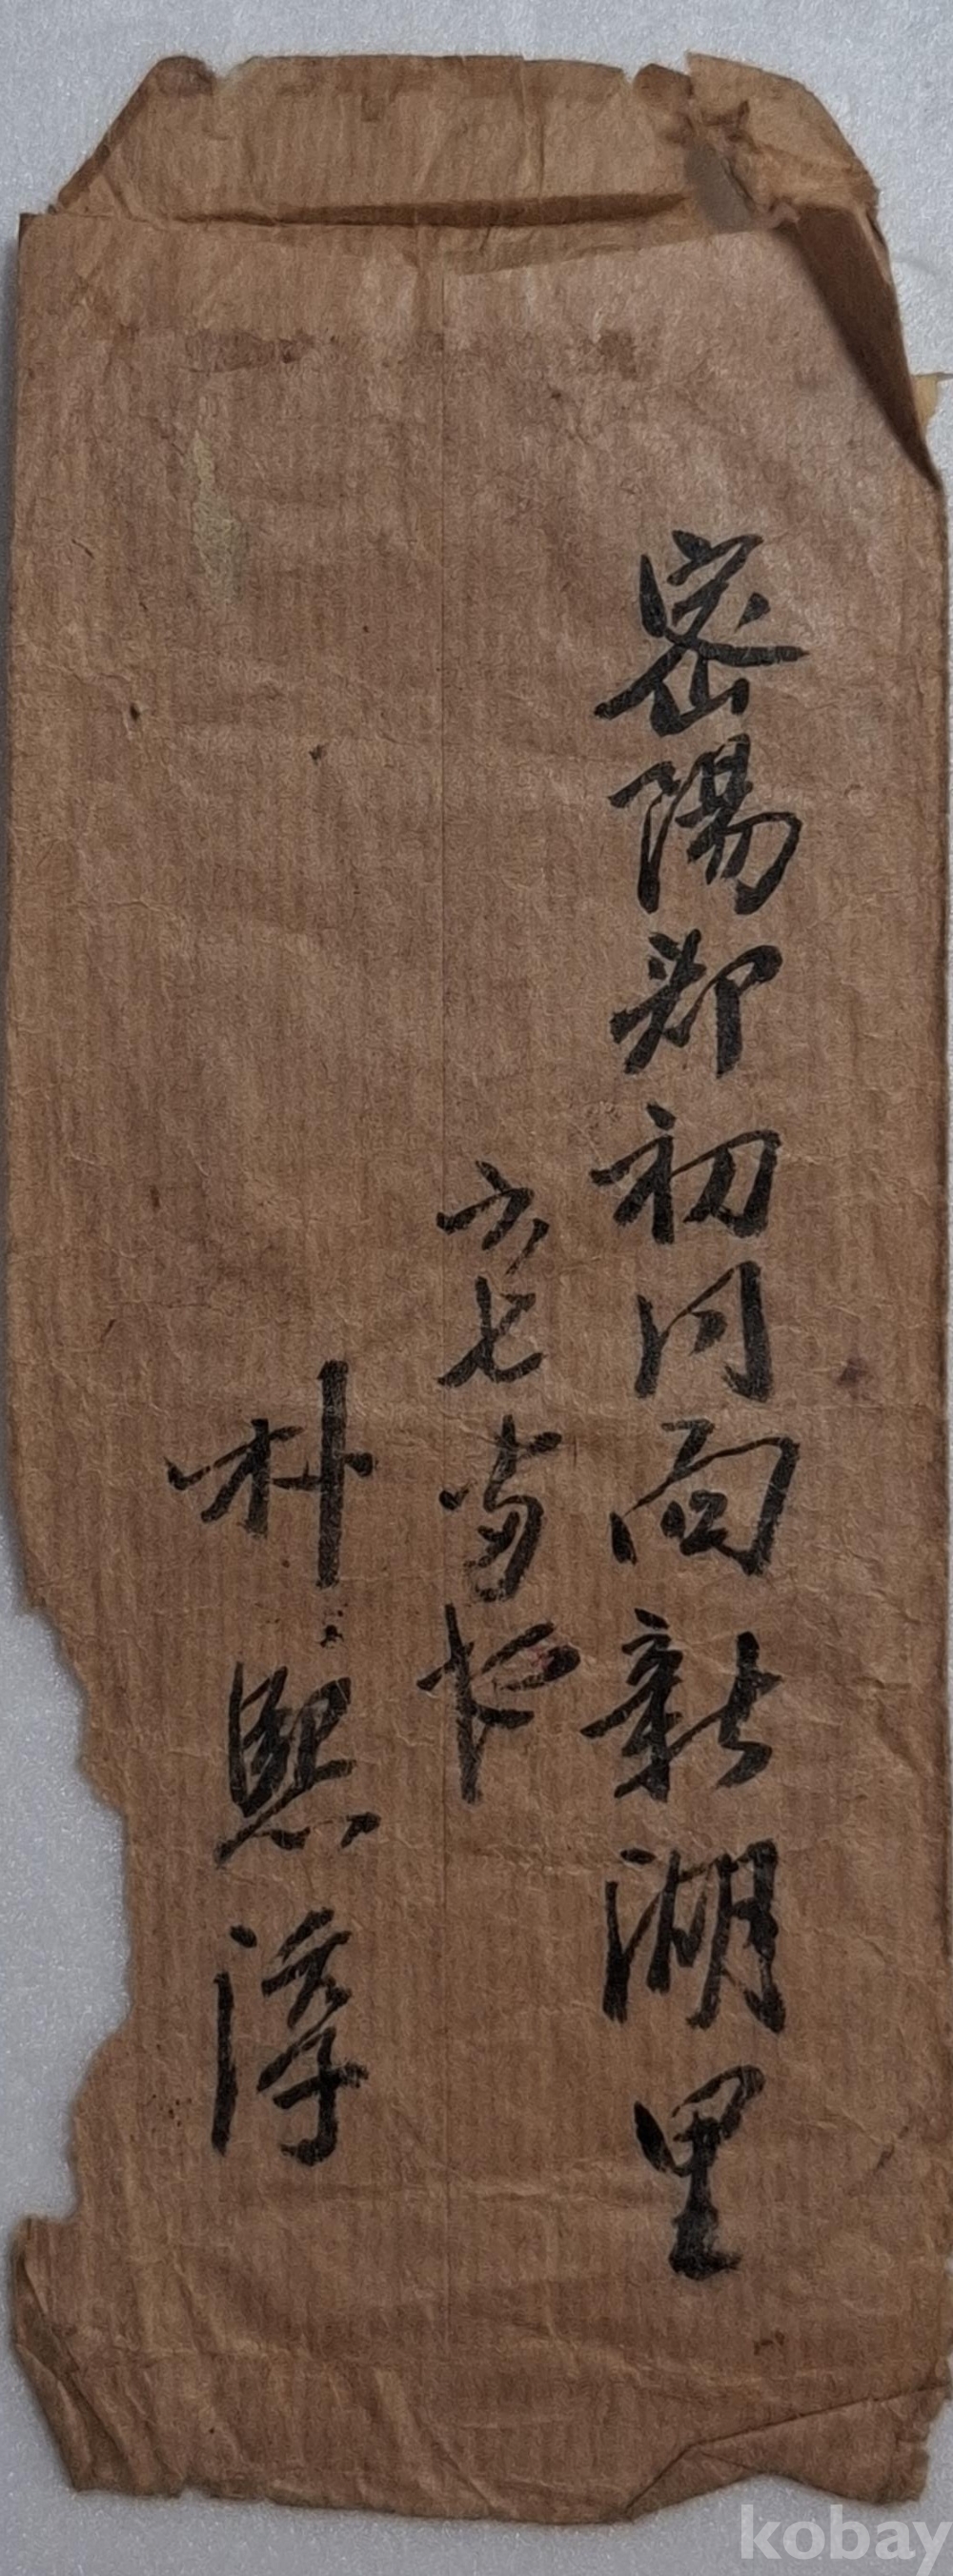 密陽郡初同面新湖里
六七番地
朴熙淳
kobay